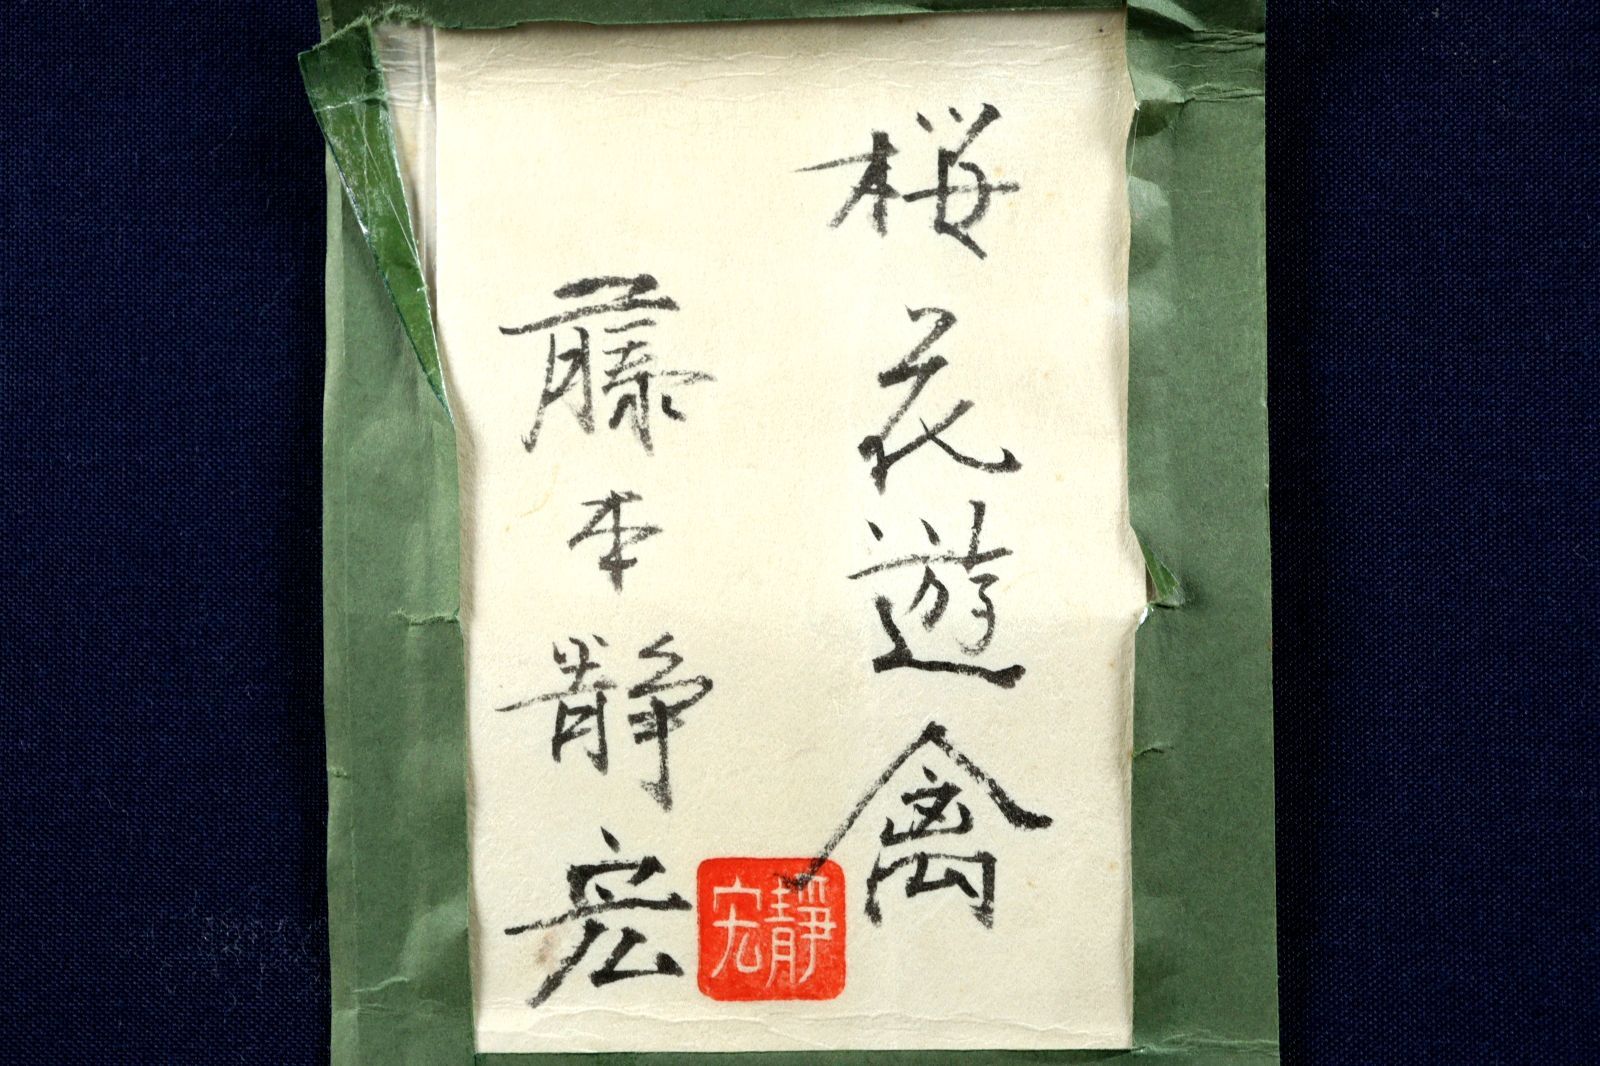 桜花遊禽
藤本静宏
靜宏